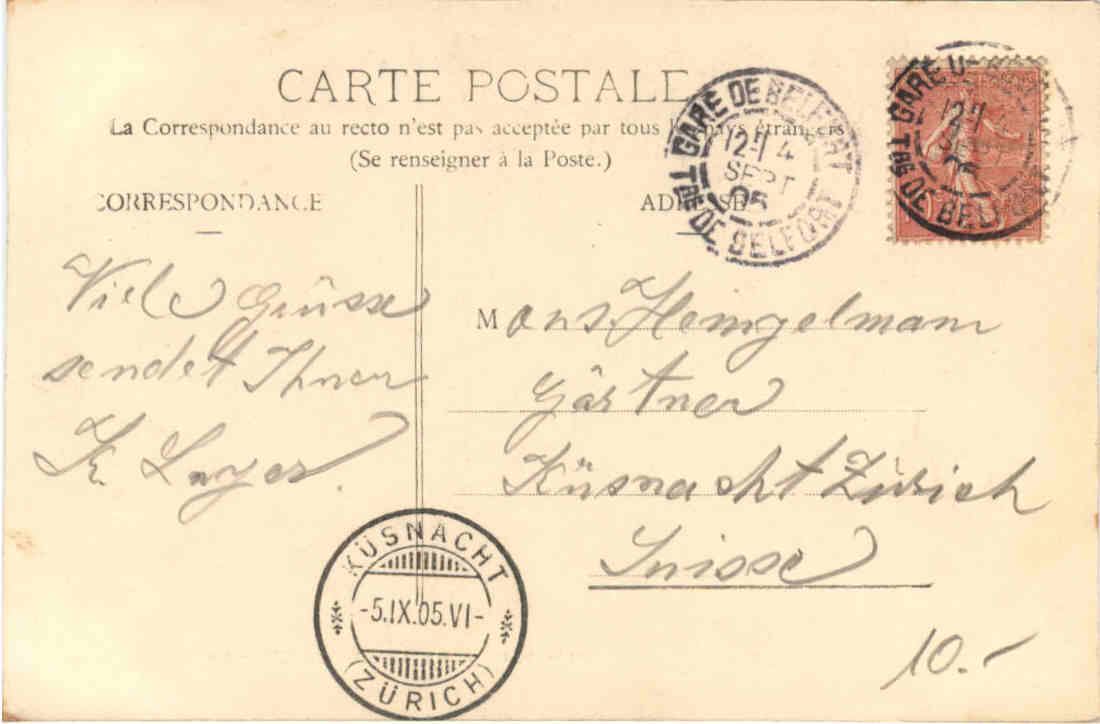 CARTE POSTALE
La Correspondance au recto n'est pas acceptée par tous les pays étrangers
(Se renseigner à la Poste.)
CORRESPONDANCE
ADRESSE
GARE DE BELFORT
12 4
SEPT
05
TRE DE BELFORT
GARE DE
12
SEPT
05
TRE DE BELFORT
Viele Grüsse
sendet Ihnen
K
M ons. Hemgelmann
Gärtner
Küsnacht Zürich
Suisse
KÜSNACHT
-5.IX.05.VI-
(ZÜRICH)
10.-